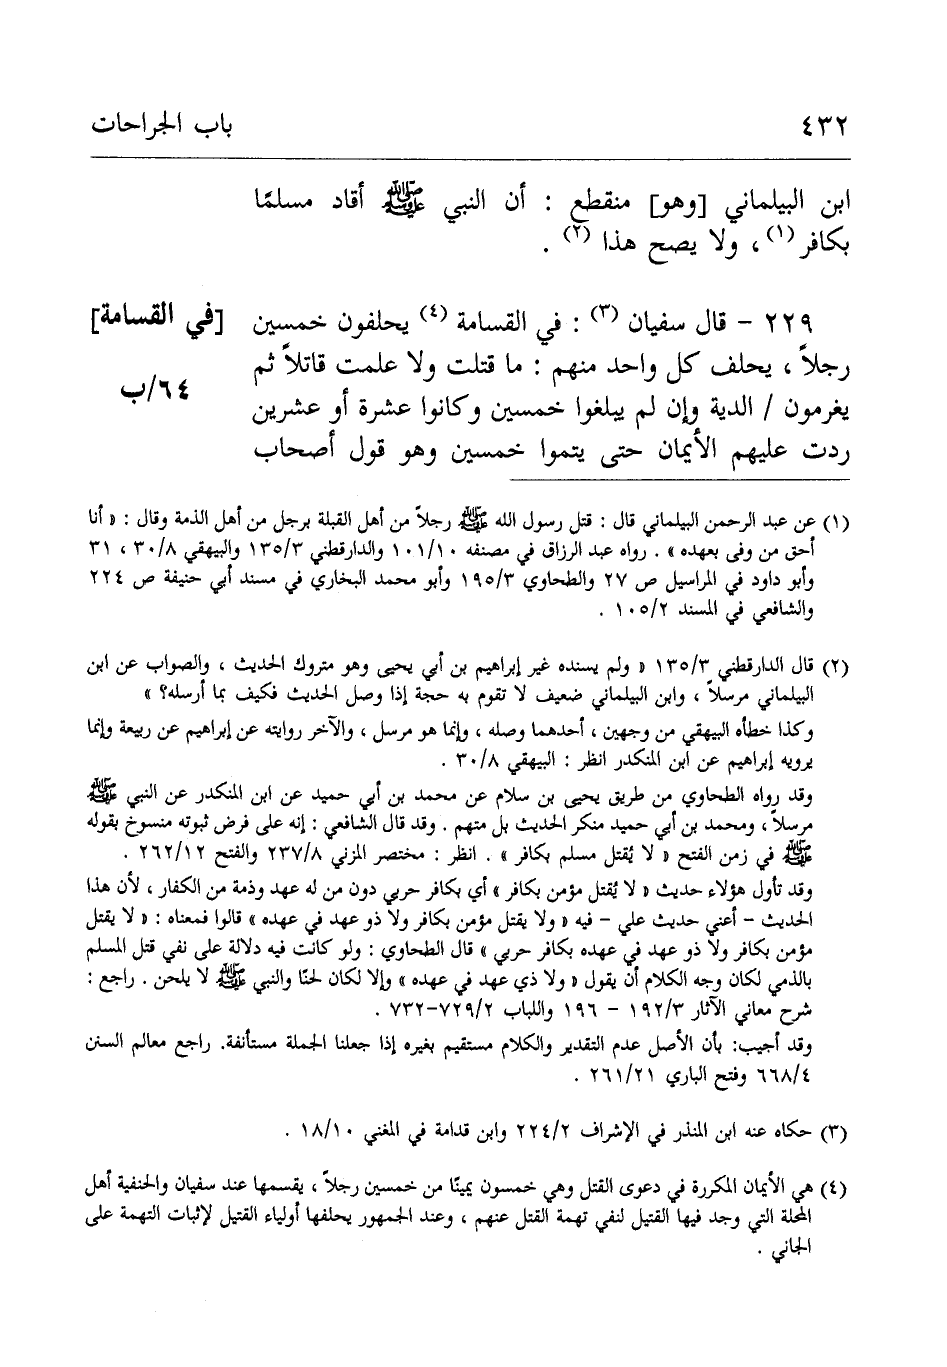 ٤٣٢ باب الجراحات
ابن البيلماني [وهو] منقطع : أن النبي ﷺ أقاد مسلمًا
بكافر (١) ، ولا يصح هذا (٢) .
٢٢٩ – قال سفيان (٣) : في القسامة (٤) يحلفون خمسين
[في القسامة]
رجلاً ، يحلف كل واحد منهم : ما قتلت ولا علمت قاتلاً ثم
يغرمون / الدية وإن لم يبلغوا خمسين وكانوا عشرة أو عشرين
٦٤/ب
ردت عليهم الأيمان حتى يتموا خمسين وهو قول أصحاب
(١) عن عبد الرحمن البيلماني قال : قتل رسول الله ﷺ رجلاً من أهل القبلة برجل من أهل الذمة وقال : « أنا
أحق من وفى بعهده » . رواه عبد الرزاق في مصنفه ١٠١/١٠ والدارقطني ١٣٥/٣ والبيهقي ٣٠/٨ ، ٣١
وأبو داود في المراسيل ص ٢٧ والطحاوي ١٩٥/٣ وأبو محمد البخاري في مسند أبي حنيفة ص ٢٢٤
والشافعي في المسند ١٠٥/٢ .
(٢) قال الدارقطني ١٣٥/٣ « ولم يسنده غير إبراهيم بن أبي يحيى وهو متروك الحديث ، والصواب عن ابن
البيلماني مرسلاً ، وابن البيلماني ضعيف لا تقوم به حجة إذا وصل الحديث فكيف بما أرسله؟ »
وكذا خطأه البيهقي من وجهين ، أحدهما وصله ، وإنما هو مرسل ، والآخر روايته عن إبراهيم عن ربيعة وإنما
يرويه إبراهيم عن ابن المنكدر انظر : البيهقي ٣٠/٨ .
وقد رواه الطحاوي من طريق يحيى بن سلام عن محمد بن أبي حميد عن ابن المنكدر عن النبي ﷺ
مرسلاً ، ومحمد بن أبي حميد منكر الحديث بل متهم . وقد قال الشافعي : إنه على فرض ثبوته منسوخ بقوله
ﷺ في زمن الفتح « لا يُقتل مسلم بكافر » . انظر : مختصر المزني ٢٣٧/٨ والفتح ٢٦٢/١٢ .
وقد تأول هؤلاء حديث « لا يُقتل مؤمن بكافر » أي بكافر حربي دون من له عهد وذمة من الكفار ، لأن هذا
الحديث – أعني حديث علي – فيه « ولا يقتل مؤمن بكافر ولا ذو عهد في عهده » قالوا فمعناه : « لا يقتل
مؤمن بكافر ولا ذو عهد في عهده بكافر حربي » قال الطحاوي : ولو كانت فيه دلالة على نفي قتل المسلم
بالذمي لكان وجه الكلام أن يقول « ولا ذي عهد في عهده » وإلا لكان لحنًا والنبي ﷺ لا يلحن . راجع :
شرح معاني الآثار ١٩٢/٣ – ١٩٦ واللباب ٧٢٩/٢–٧٣٢ .
وقد أجيب: بأن الأصل عدم التقدير والكلام مستقيم بغيره إذا جعلنا الجملة مستأنفة. راجع معالم السنن
٦٦٨/٤ وفتح الباري ٢٦١/٢١ .
(٣) حكاه عنه ابن المنذر في الإشراف ٢٢٤/٢ وابن قدامة في المغني ١٨/١٠ .
(٤) هي الأيمان المكررة في دعوى القتل وهي خمسون يمينًا من خمسين رجلاً ، يقسمها عند سفيان والحنفية أهل
المحلة التي وجد فيها القتيل لنفي تهمة القتل عنهم ، وعند الجمهور يحلفها أولياء القتيل لإثبات التهمة على
الجاني .